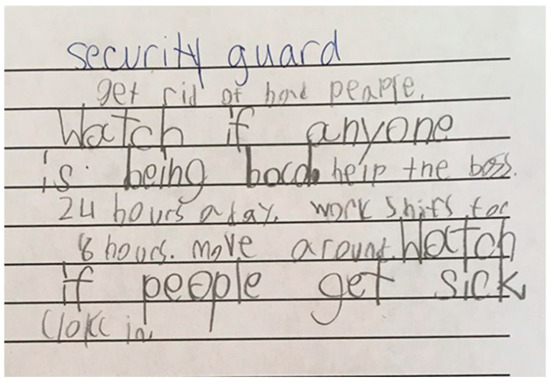 security guard
get rid of bad peaple.
Watch if anyone
is being bad. help the boss.
24 hours a day. work shifts for
8 hours. move around. Watch
if people get sick
Clokc in